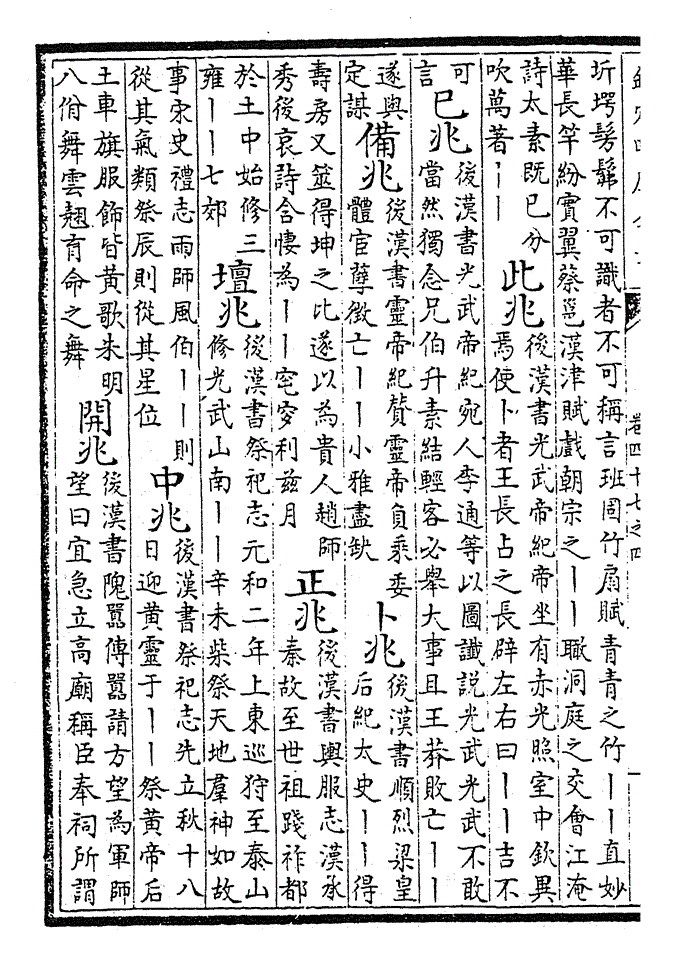 卷四十七之四
圻堮髣髴不可識者不可稱言班固竹扇賦青青之竹丨丨直妙
華長竿紛實翼蔡邕漢津賦戲朝宗之丨丨瞰洞庭之交會江淹
詩太素既已分
吹萬著丨丨
此兆
後漢書光武帝紀帝坐有赤光照室中欽異
焉使卜者王長占之長辟左右曰丨丨吉不
可
言
已兆
後漢書光武帝紀宛人李通等以圖讖説光武光武不敢
當然獨念兄伯升素結輕客必舉大事且王莽敗亡丨丨
遂與
定謀
備兆
後漢書靈帝紀贊靈帝負乘委
體宦孽徵亡丨丨小雅盡缺
卜兆
後漢書順烈梁皇
后紀太史丨丨得
壽房又筮得坤之比遂以為貴人趙師
秀後哀詩含悽為丨丨窀穸利兹月
正兆
後漢書輿服志漢承
秦故至世祖踐祚都
於土中始修三
雍丨丨七郊
壇兆
後漢書祭祀志元和二年上東巡狩至泰山
修光武山南丨丨辛未柴祭天地羣神如故
事宋史禮志雨師風伯丨丨則
從其氣類祭辰則從其星位
中兆
後漢書祭祀志先立秋十八
日迎黄靈于丨丨祭黄帝后
土車旗服飾皆黄歌朱明
八佾舞雲翹育命之舞
開兆
後漢書隗囂傳囂請方望為軍師
望曰宜急立高廟稱臣奉祠所謂